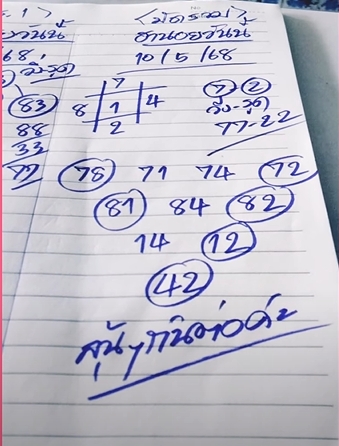 <มัดรวม>
ฮานอยวันนี้
10/5/68
7
8 1 4
2
7-2
วิ่ง-รูด
77-22
78 71 74 72
81 84 82
14 12
42
ลุ้นๆกันต่อค่ะ
1>
วันนี้
68
วิ่งรูด
83
88
33
77